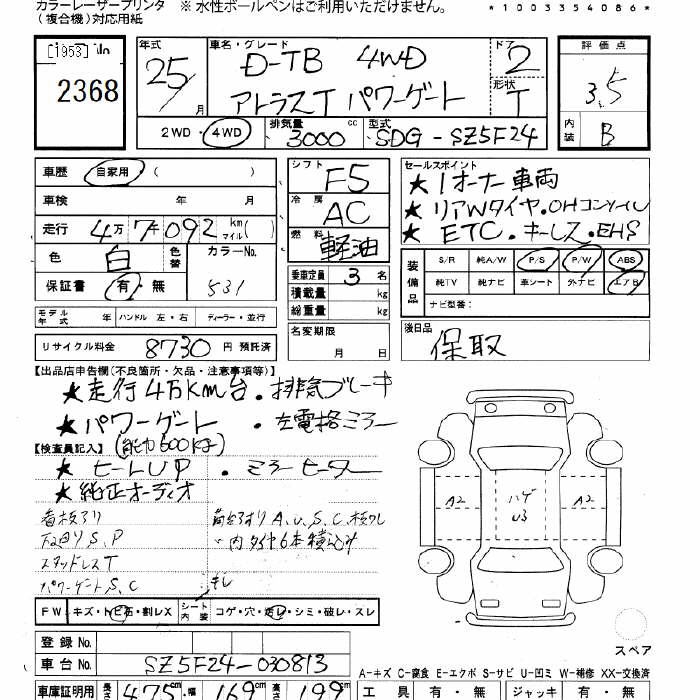 カラーレーザープリンタ ※ 水性ボールペンはご利用いただけません。
(複合機)対応用紙
*1003354086*
2368
年式 25 / 月
車名・グレード D-TB 4WD
アトラスT パワーゲート
ドア 2
形状 T
2WD ・ 4WD
排気量 3000 cc
型式 SDG-SZ5F24
評価点
3.5
内装 B
車歴 自家用
車検 年 月
走行 4万 7千 092 km マイル ( )
色 白 色替
カラーNo. 531
保証書 有・無
モデル年式 年 ハンドル 左・右 ディーラー・並行
リサイクル料金 8730 円 預託済
シフト F5
冷房 AC
燃料 軽油
乗車定員 3 名
積載量 kg
総重量 kg
名変期限
月 日
セールスポイント
★ 1オーナー車両
★ リアWタイヤ.OHコンソール
★ ETC.キーレス.EHS
装備品
S/R 純A/W P/S P/W ABS
純TV 純ナビ 革シート 外ナビ エアB
ナビ型番:
後日品
保取
【出品店申告欄(不良箇所・欠品・注意事項等)】
★ 走行4万KM台.排気ブレーキ
★ パワーゲート . 左電格ミラー
(能力600kg)
【検査員記入】
★ ヒートUP . ミラーヒーター
★ 純正オーディオ
看板アリ
下回りS.P
スタッドレスT
パワーゲートS.C
内タイヤ6本積込み
キレ
A2
ハゲ
U3
A2
FW キズ・トビ石・割レX
シート内装 コゲ・穴・キレ・シミ・破レ・スレ
スペア
登録 No.
車台 No. SZ5F24-030813
A-キズ C-腐食 E-エクボ S-サビ U-凹ミ W-補修 XX-交換済
車庫証明用 長さ 475 cm 幅 169 cm 高さ 199 cm
工具 有・無 ジャッキ 有・無